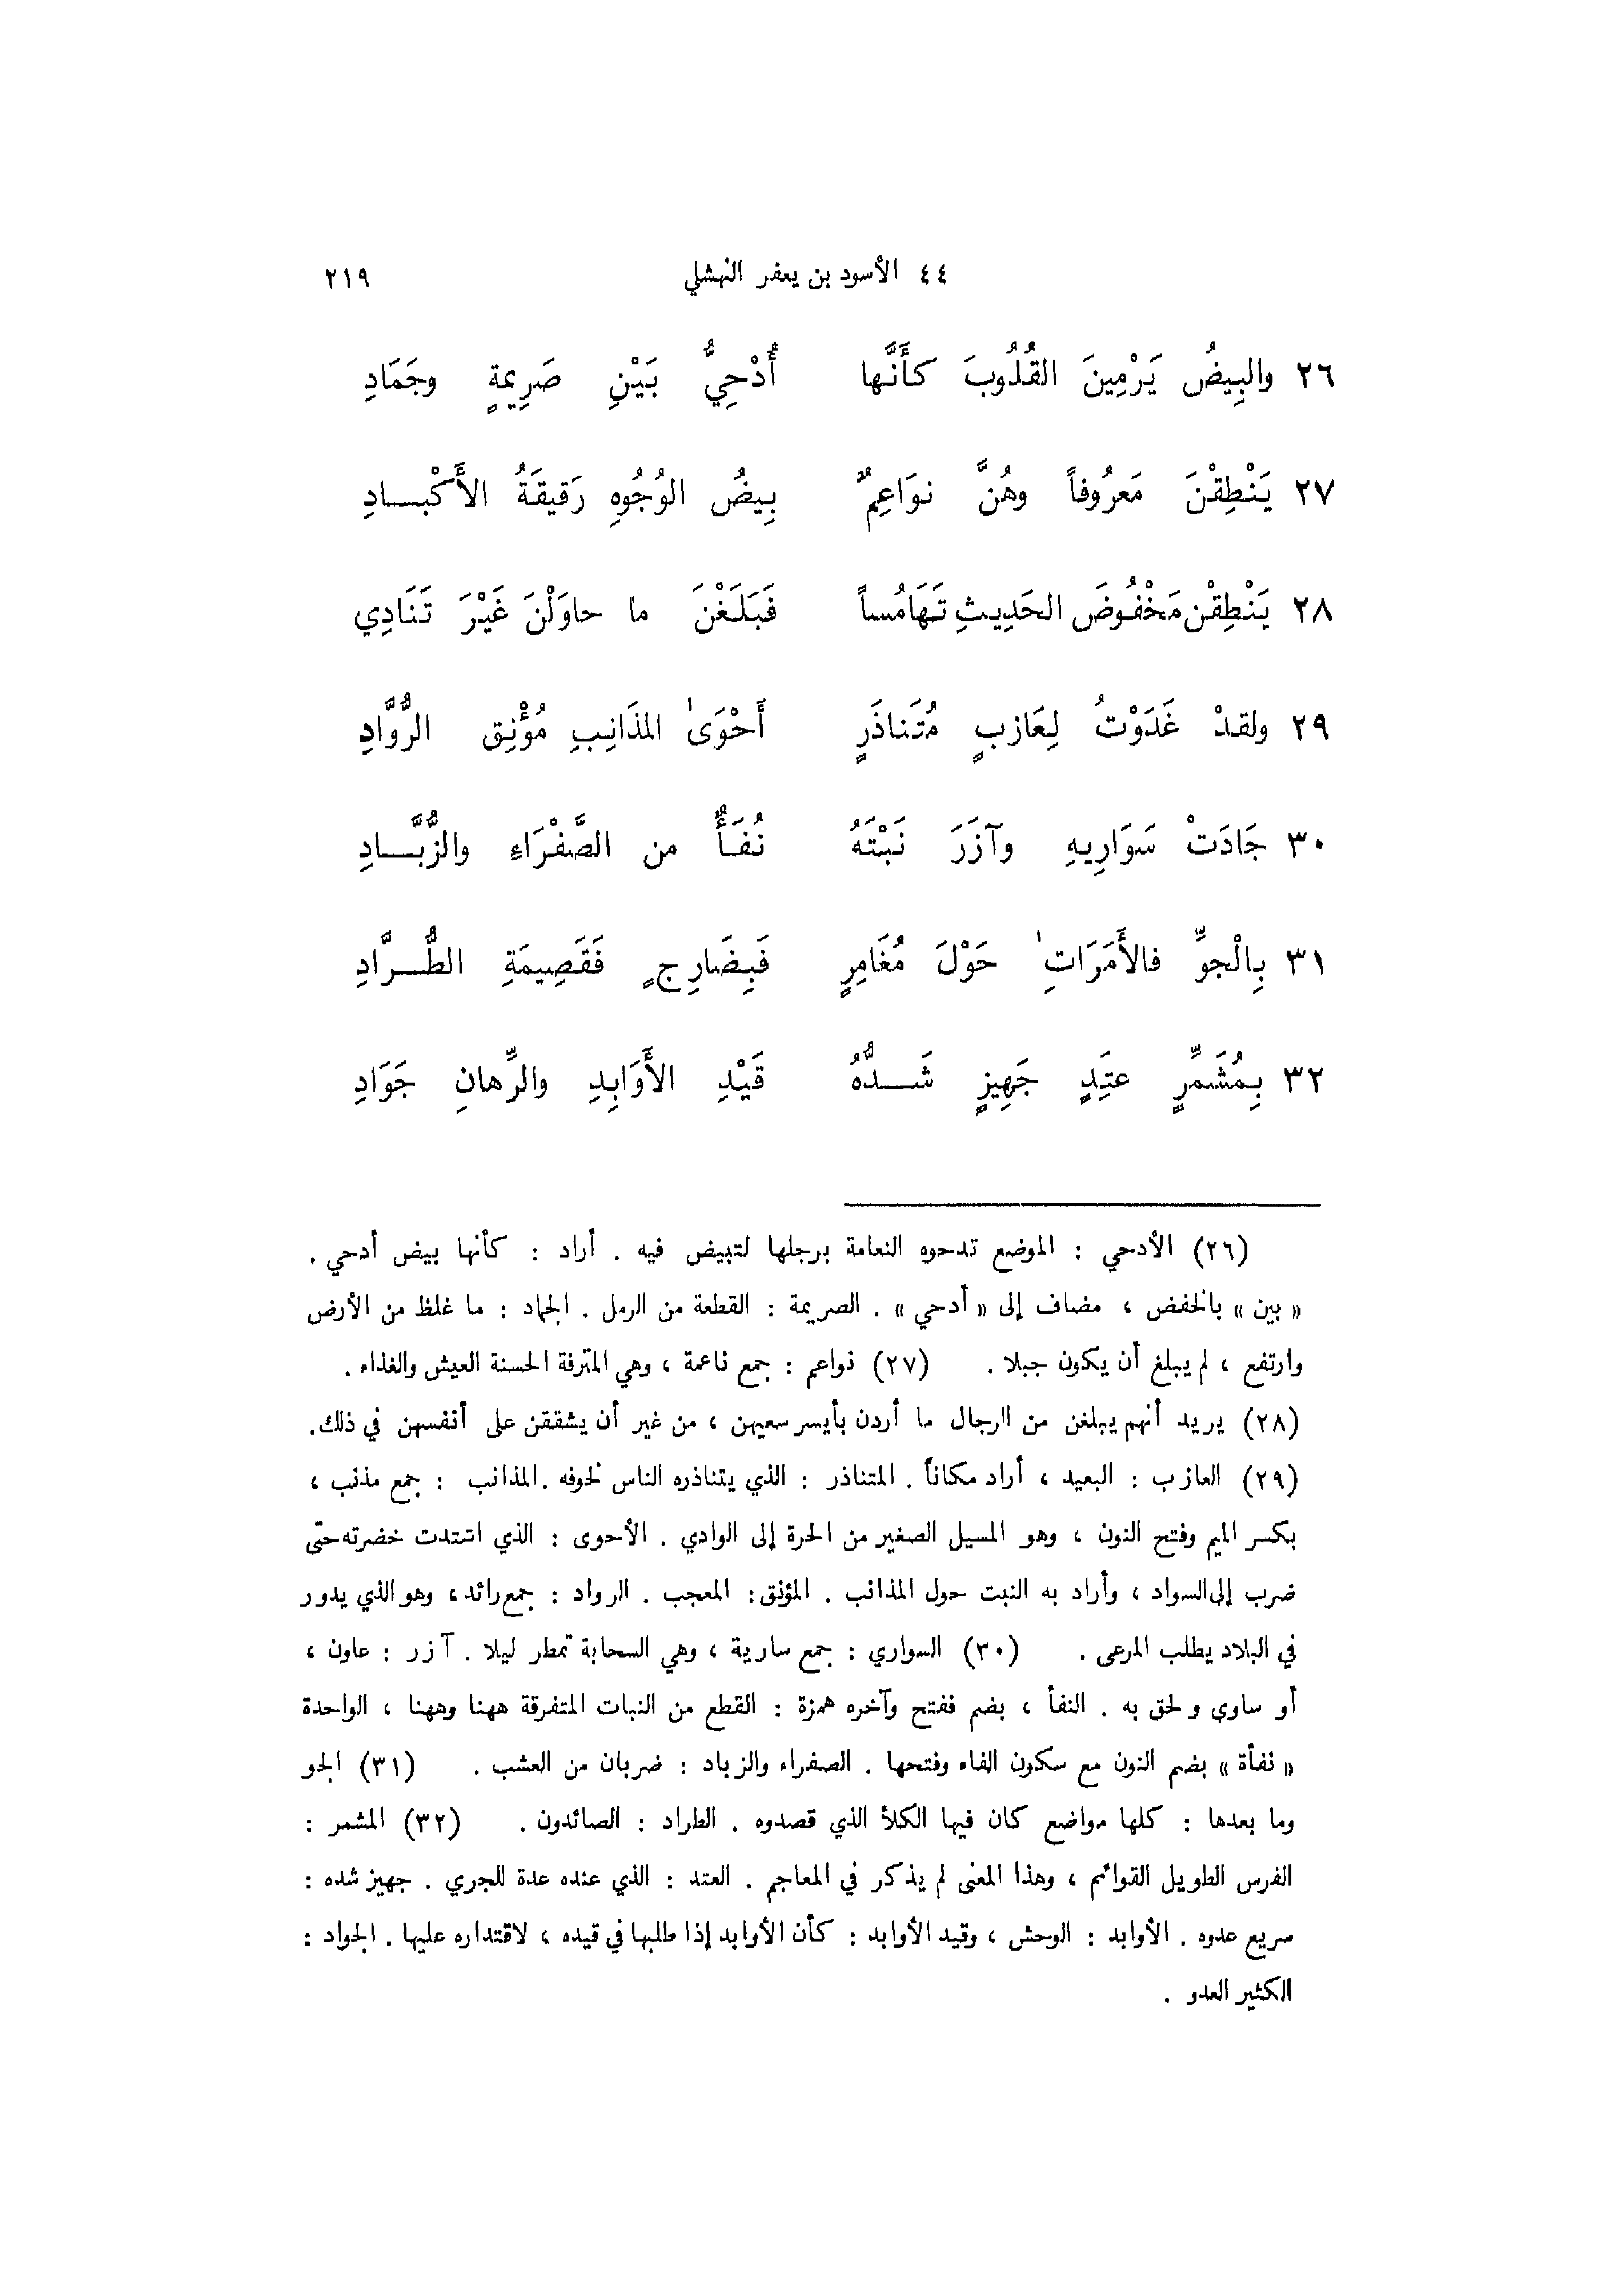 ٤٤ الأسود بن يعفر النهشلي ٢١٩
٢٦ والبِيضُ يَرْمِينَ القُلُوبَ كأَنَّها أُدْحِيُّ بَيْنِ صَرِيمةٍ وجَمَادِ
٢٧ يَنْطِقْنَ مَعرُوفاً وهُنَّ نوَاعِمٌ بِيضُ الوُجُوهِ رَقيقَةُ الأَكْبــادِ
٢٨ يَنْطِقْن مَخْفُوضَ الحَدِيثِ تَهَامُساً فَبَلَغْنَ ما حاوَلْنَ غَيْرَ تَنَادِي
٢٩ ولقدْ غَدَوْتُ لِعَازبٍ مُتَناذَرٍ أَحْوَىٰ المذَانِبِ مُؤْنِق الرُّوَّادِ
٣٠ جَادَتْ سَوَارِيهِ وآزَرَ نَبْتَهُ نُفَأٌ من الصَّفْرَاءِ والزُّبَّــادِ
٣١ بِالْجوِّ فالأَمَرَاتِ حَوْلَ مُغَامِرٍ فَبِضَارِجٍ فَقَصِيمَةِ الطُّــرَّادِ
٣٢ بِمُشَمرٍّ عتَِدٍ جَهِيزٍ شَــدُّهُ قَيْدِ الأَوَابِدِ والرِّهانِ جَوَادِ
(٢٦) الأدحي : الموضع تدحوه النعامة برجلها لتبيض فيه . أراد : كأنها بيض أدحي .
« بين » بالخفض ، مضاف إلى « أدحي » . الصريمة : القطعة من الرمل . الجماد : ما غلظ من الأرض
وارتفع ، لم يبلغ أن يكون جبلا . (٢٧) نواعم : جمع ناعمة ، وهي المترفة الحسنة العيش والغذاء .
(٢٨) يريد أنهم يبلغن من الرجال ما أردن بأيسر سعيهن ، من غير أن يشققن على أنفسهن في ذلك.
(٢٩) العازب : البعيد ، أراد مكاناً . المتناذر : الذي يتناذره الناس لخوفه .المذانب : جمع مذنب ،
بكسر الميم وفتح النون ، وهو المسيل الصغير من الحرة إلى الوادي . الأحوى : الذي اشتدت خضرته حتى
ضرب إلى السواد ، وأراد به النبت حول المذانب . المؤنق: المعجب . الرواد : جمع رائد، وهو الذي يدور
في البلاد يطلب المرعى . (٣٠) السواري : جمع سارية ، وهي السحابة تمطر ليلا . آزر : عاون ،
أو ساوى ولحق به . النفأ ، بضم ففتح وآخره همزة : القطع من النبات المتفرقة ههنا وههنا ، الواحدة
« نفأة » بضم النون مع سكون الفاء وفتحها . الصفراء والزباد : ضربان من العشب . (٣١) الجو
وما بعدها : كلها مواضع كان فيها الكلأ الذي قصدوه . الطراد : الصائدون . (٣٢) المشمر :
الفرس الطويل القوائم ، وهذا المعنى لم يذكر في المعاجم . العتد : الذي عنده عدة للجري . جهيز شده :
سريع عدوه . الأوابد : الوحش ، وقيد الأوابد : كأن الأوابد إذا طلبها في قيده ، لاقتداره عليها . الجواد :
الكثير العدو .